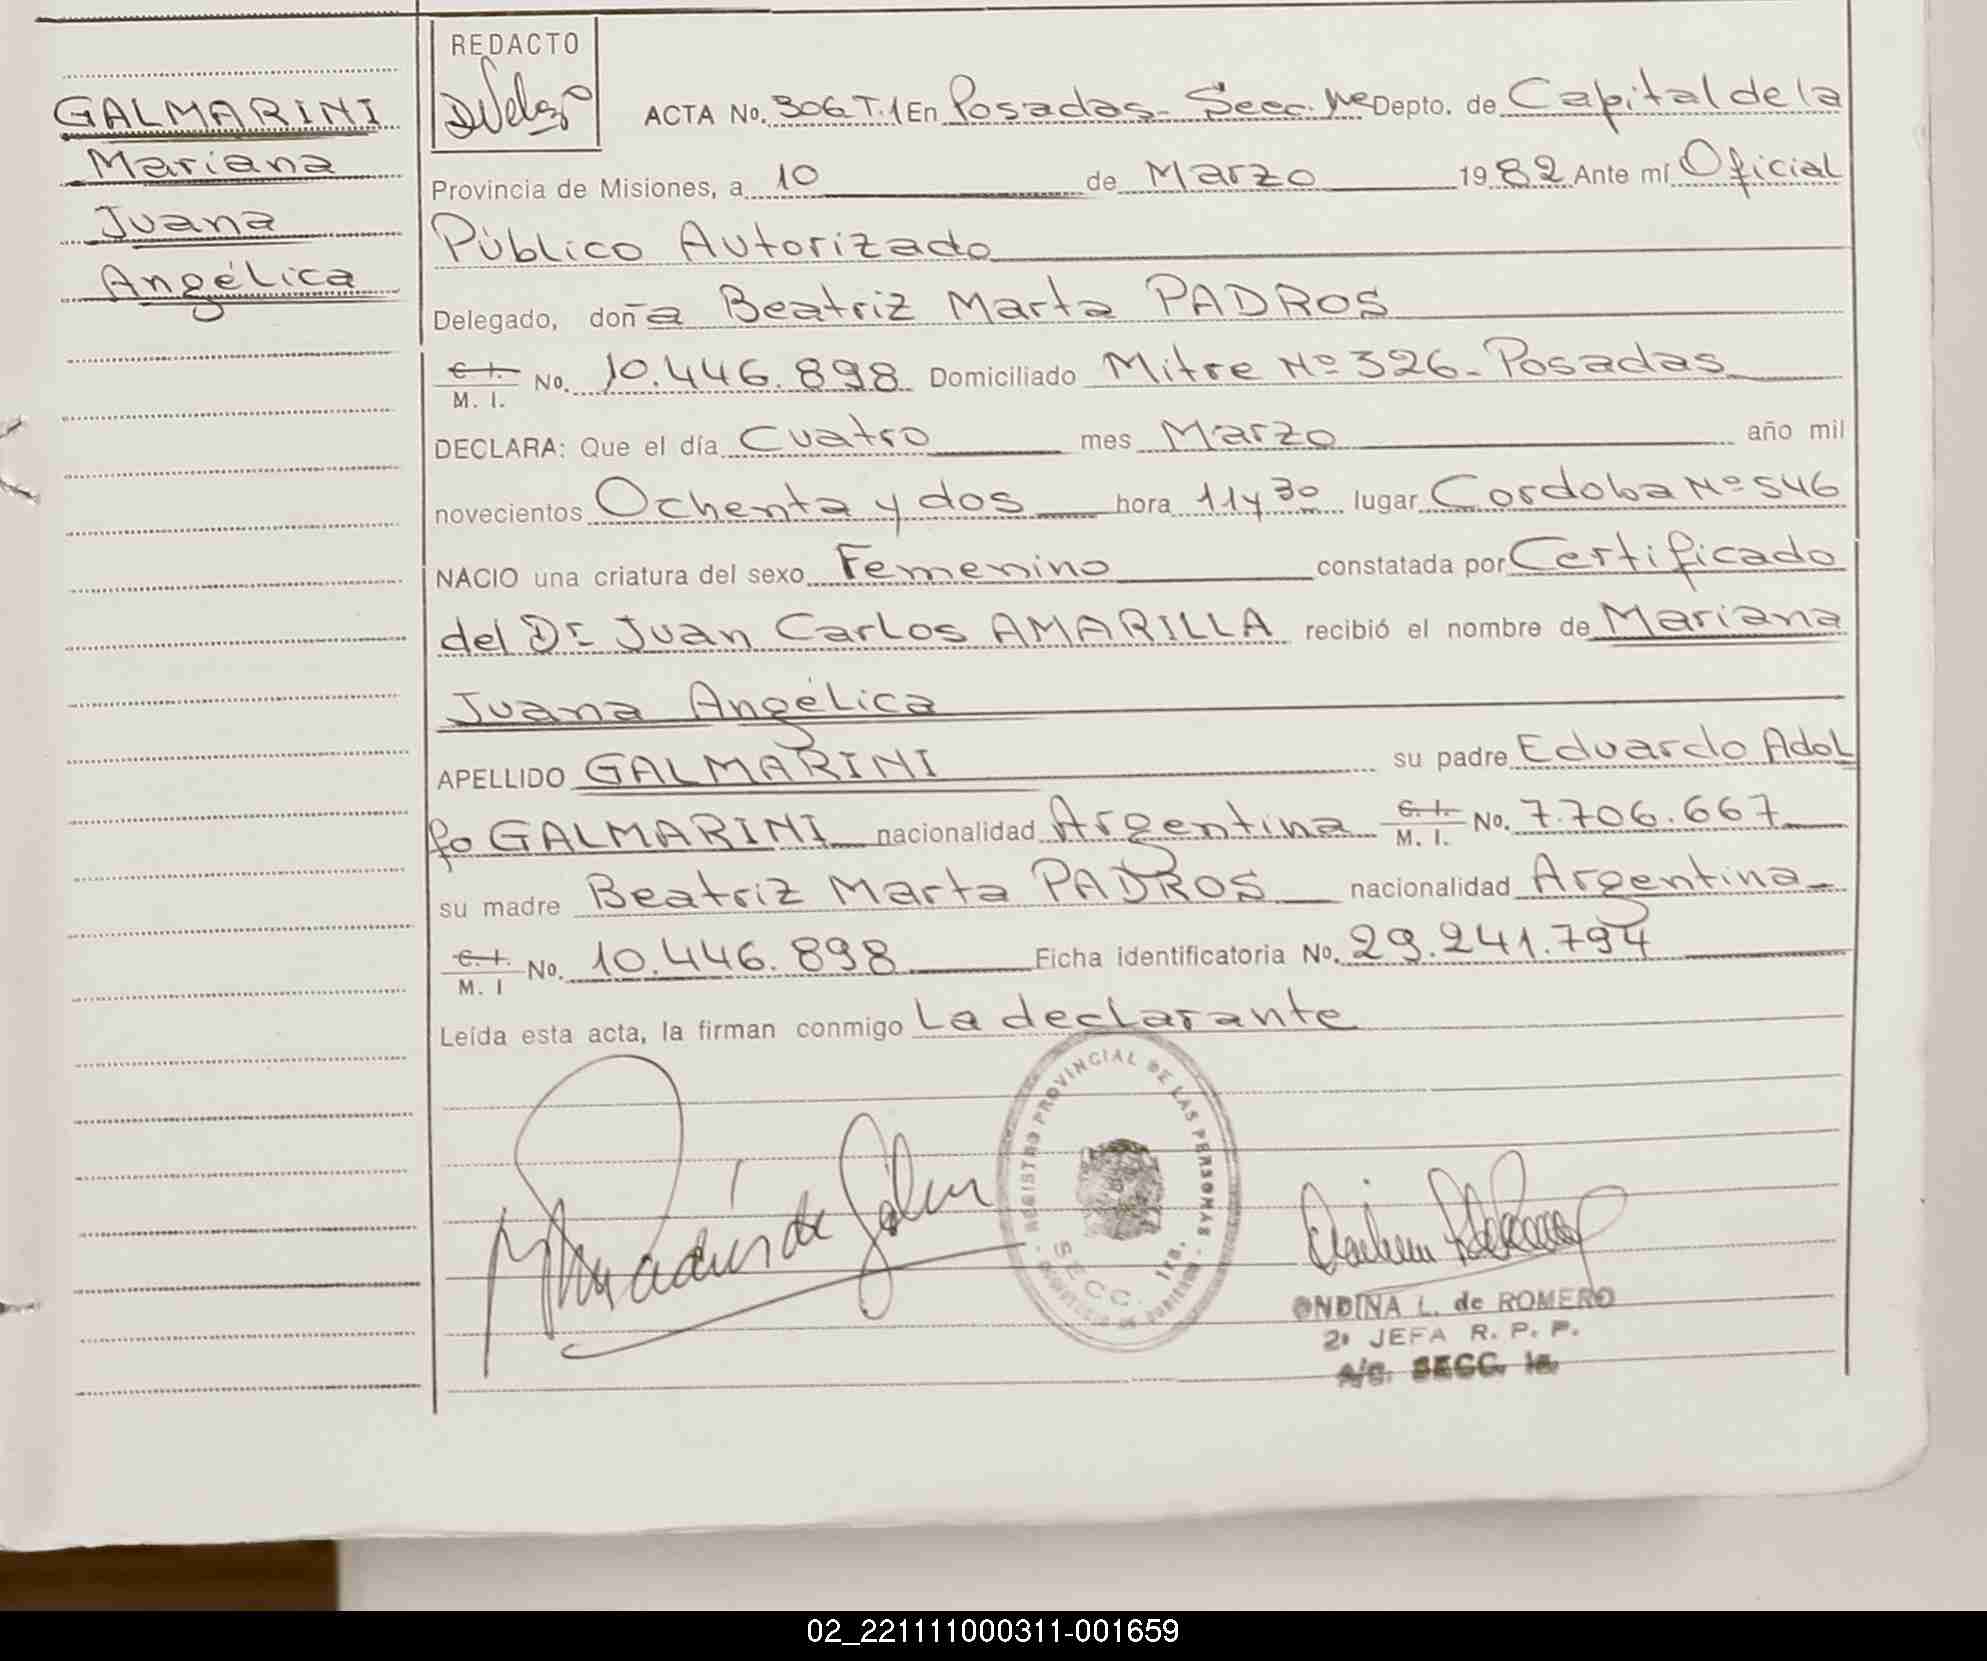 GALMARINI
Mariana
Juana
Angélica
REDACTO
ACTA No. 306 T.1 En Posadas- Secc. 1ra Depto. de Capital de la
Provincia de Misiones, a 10 de Marzo 1982 Ante mí Oficial
Público Autorizado
Delegado, doña Beatriz Marta PADROS
C. I. M. I. No. 10.446.898 Domiciliado Mitre Nº 326- Posadas
DECLARA: Que el día Cuatro mes Marzo año mil
novecientos Ochenta y dos hora 11 y 30 lugar Cordoba Nº 546
NACIO una criatura del sexo Femenino constatada por Certificado
del Dr Juan Carlos AMARILLA recibió el nombre de Mariana
Juana Angélica
APELLIDO GALMARINI su padre Eduardo Adol
fo GALMARINI nacionalidad Argentina C. I. M. I. No. 7.706.667
su madre Beatriz Marta PADROS nacionalidad Argentina
C. I. M. I No. 10.446.898 Ficha identificatoria No. 29.241.794
Leída esta acta, la firman conmigo La declarante
REGISTRO PROVINCIAL DE LAS PERSONAS
SECC. 1ra.
ONDINA L. de ROMERO
2ª JEFA R. P. P.
A/C. SECC. 1a.
02_221111000311-001659